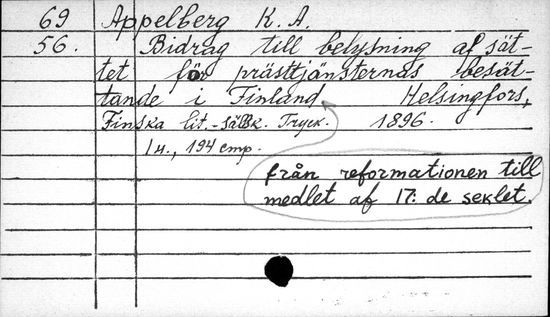 69 Appelberg K. A.
56. Bidrag till belysning af sät-
tet för prästtjänsternas besät-
tande i Finland Helsingfors,
Finska lit.-sällsk. Tryck. 1896.
1 н., 194 стр.
från reformationen till
medlet af 17: de seklet.